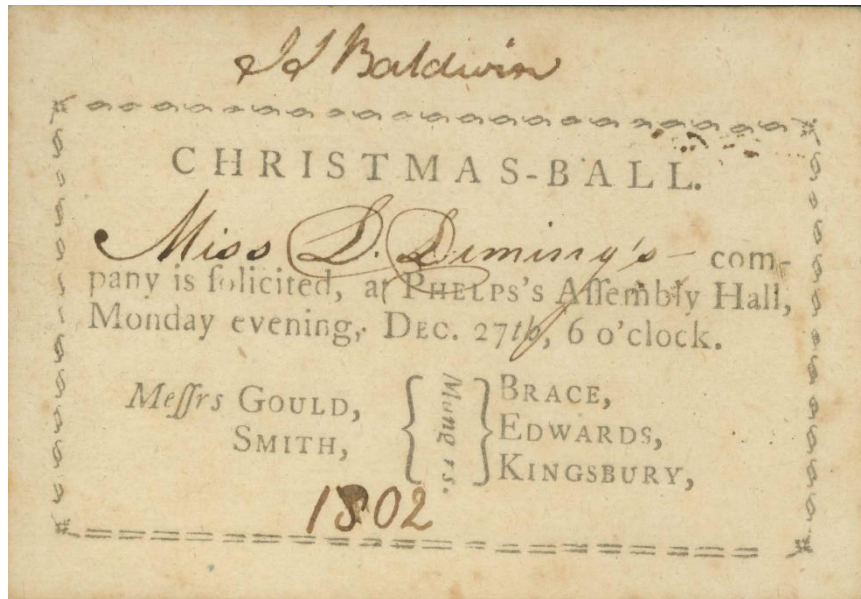 J J Baldwin
CHRISTMAS-BALL.
Miss D. Deming's - com-
pany is ſolicited, at PHELPS's Aſſembly Hall,
Monday evening, DEC. 27th, 6 o'clock.
Meſſrs GOULD,
SMITH,
Mang rs.
BRACE,
EDWARDS,
KINGSBURY,
1802